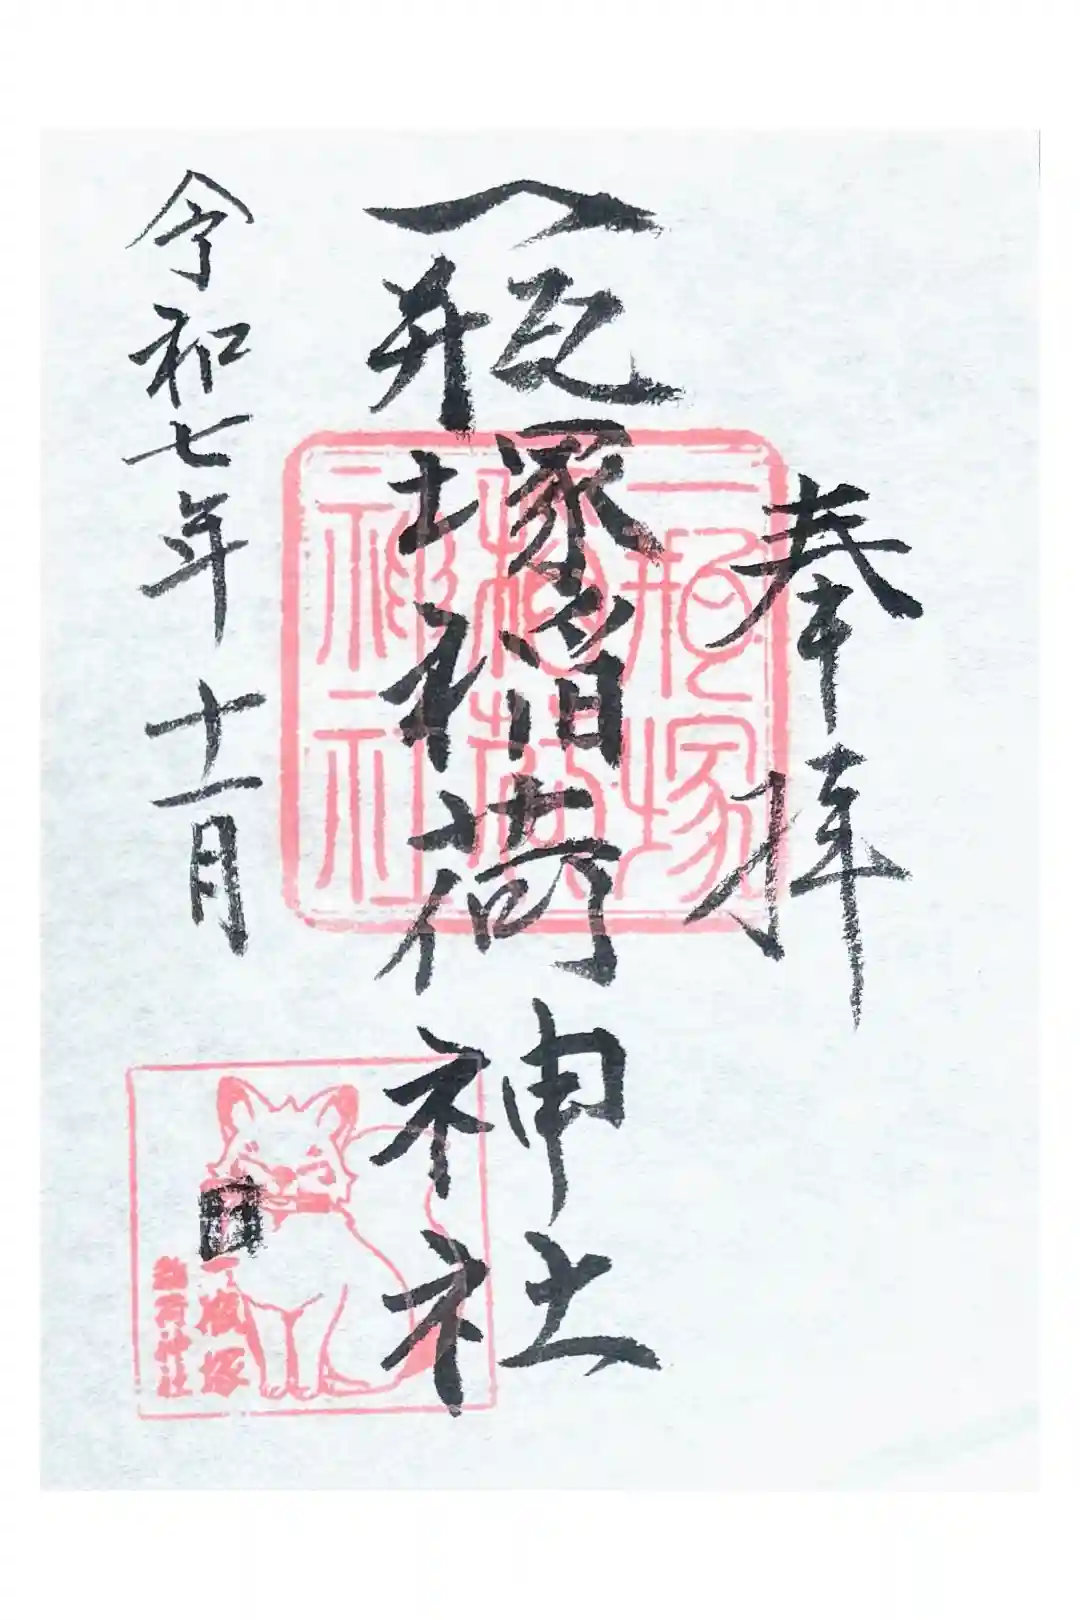 奉拝
一瓶塚稲荷神社
令和七年十一月
一瓶塚
稲荷神社
一瓶塚
稲荷神社